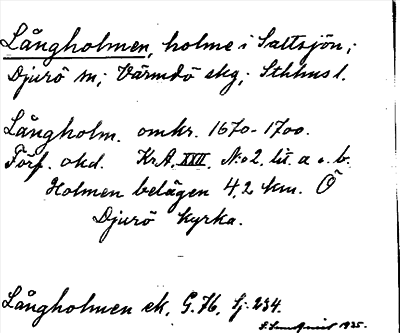 Långholmen, holme i Saltsjön;
Djurö sn; Värmdö skg; Sthlms l.
Långholm. omkr. 1670-1700.
Förf. okd. Kr.A. XXII. No 2. lit. a o. b.
Holmen belägen 4,2 km. Ö
Djurö kyrka.
Långholmen ek. G. 76, Sj. 234.
1935.